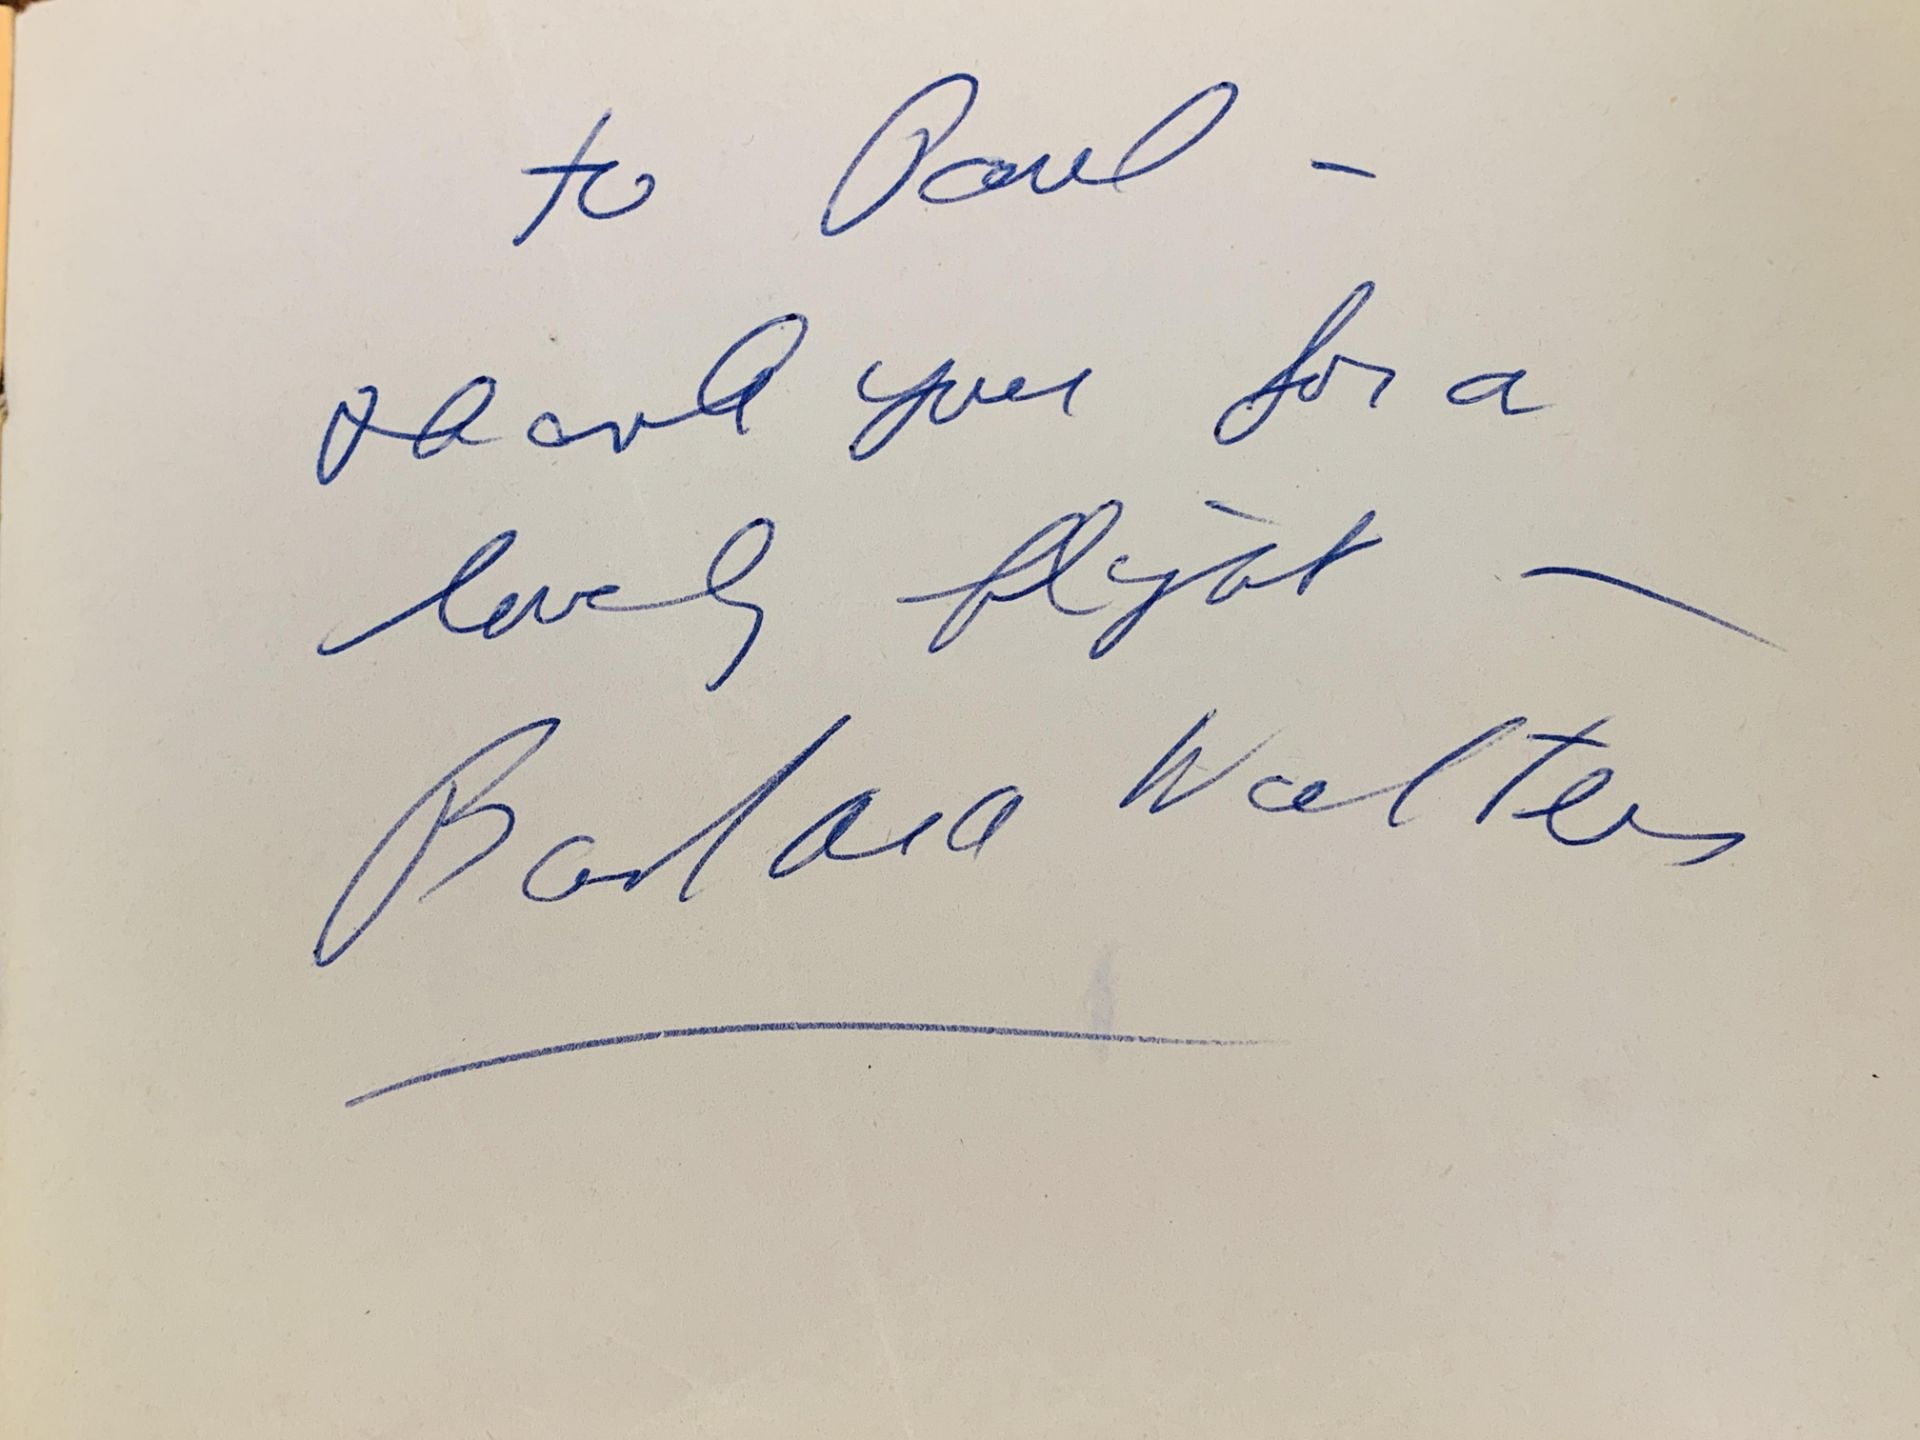 to Paul -
thank you for a
lovely flight —
Barbara Walters